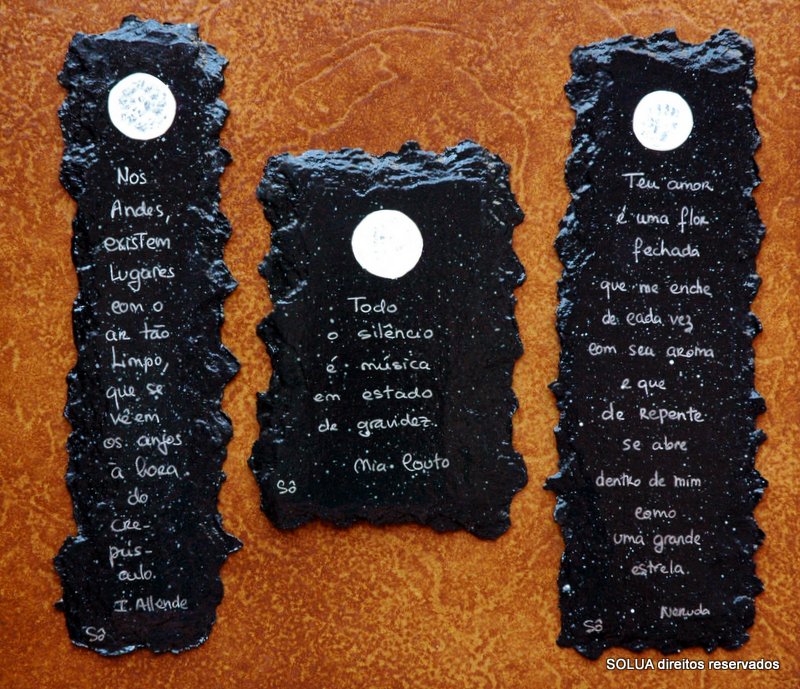 Nos
Andes,
existem
lugares
com o
ar tão
limpo,
que se
vêem
os anjos
à hora
do
cre-
pús-
culo.
I. Allende
Sô
Todo
o silêncio
é música
em estado
de gravidez.
Mia Couto
Sô
Teu amor
é uma flor
fechada
que me enche
de cada vez
com seu aroma
e que
de repente
se abre
dentro de mim
como
uma grande
estrela.
Neruda
Sô
SOLUA direitos reservados